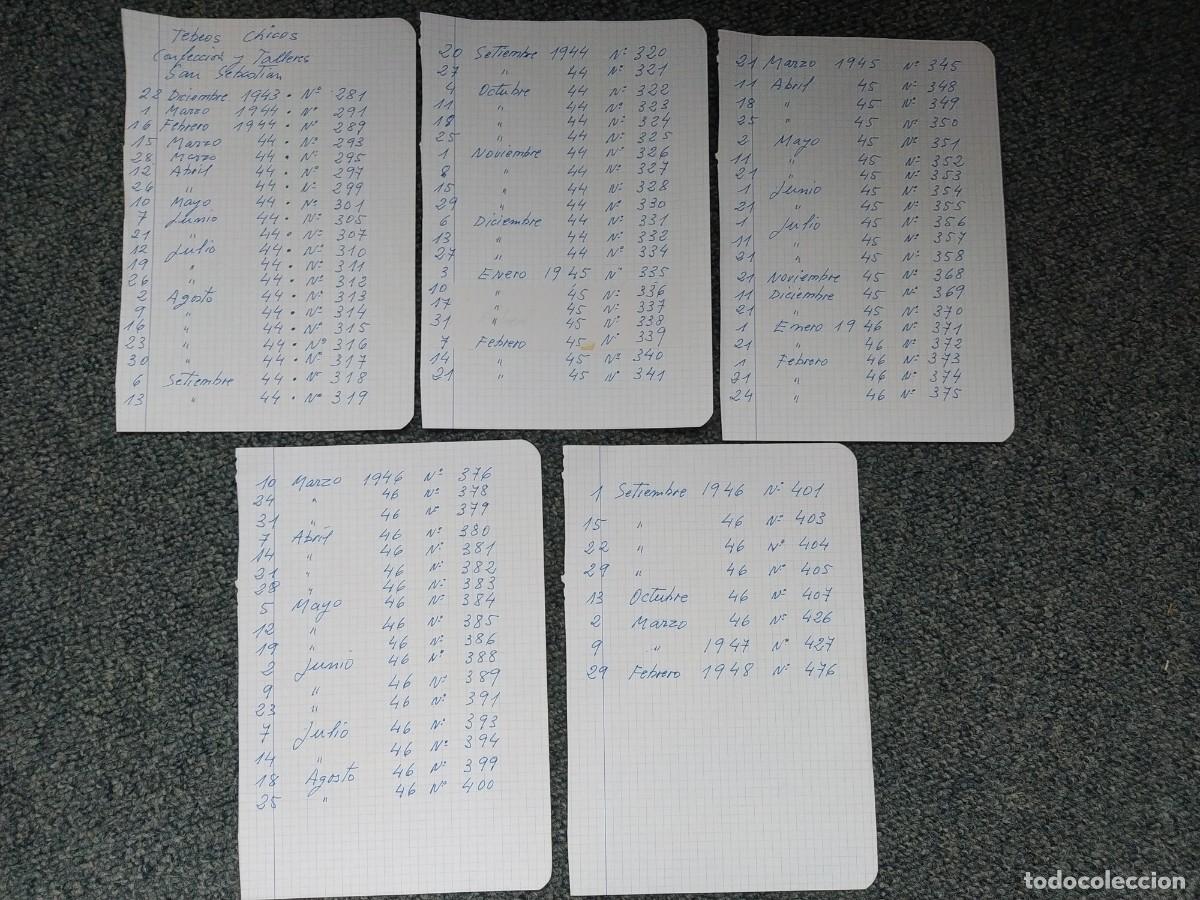 Tebeos Chicos
Confección y Talleres
San Sebastián
22 Diciembre 1943 • Nº 281
1 Marzo 1944 • Nº 291
16 Febrero 1944 • Nº 289
15 Marzo 44 • Nº 293
28 Marzo 44 • Nº 295
12 Abril 44 • Nº 297
26 " 44 • Nº 299
10 Mayo 44 • Nº 301
7 Junio 44 • Nº 305
21 " 44 • Nº 307
12 Julio 44 • Nº 310
19 " 44 • Nº 311
26 " 44 • Nº 312
2 Agosto 44 • Nº 313
9 " 44 • Nº 314
16 " 44 • Nº 315
23 " 44 • Nº 316
30 " 44 • Nº 317
6 Setiembre 44 • Nº 318
13 " 44 • Nº 319
20 Setiembre 1944 Nº 320
27 " 44 Nº 321
4 Octubre 44 Nº 322
11 " 44 Nº 323
18 " 44 Nº 324
25 " 44 Nº 325
1 Noviembre 44 Nº 326
8 " 44 Nº 327
15 " 44 Nº 328
29 " 44 Nº 330
6 Diciembre 44 Nº 331
13 " 44 Nº 332
27 " 44 Nº 334
3 Enero 1945 Nº 335
10 " 45 Nº 336
17 " 45 Nº 337
31 " 45 Nº 338
7 Febrero 45 Nº 339
14 " 45 Nº 340
21 " 45 Nº 341
21 Marzo 1945 Nº 345
11 Abril 45 Nº 348
18 " 45 Nº 349
25 " 45 Nº 350
2 Mayo 45 Nº 351
11 " 45 Nº 352
21 " 45 Nº 353
1 Junio 45 Nº 354
21 " 45 Nº 355
1 Julio 45 Nº 356
11 " 45 Nº 357
21 " 45 Nº 358
21 Noviembre 45 Nº 368
11 Diciembre 45 Nº 369
21 " 45 Nº 370
1 Enero 1946 Nº 371
21 " 46 Nº 372
1 Febrero 46 Nº 373
21 " 46 Nº 374
24 " 46 Nº 375
10 Marzo 1946 Nº 376
24 " 46 Nº 378
31 " 46 Nº 379
7 Abril 46 Nº 380
14 " 46 Nº 381
21 " 46 Nº 382
28 " 46 Nº 383
5 Mayo 46 Nº 384
12 " 46 Nº 385
19 " 46 Nº 386
2 Junio 46 Nº 388
9 " 46 Nº 389
23 " 46 Nº 391
7 Julio 46 Nº 393
14 " 46 Nº 394
18 Agosto 46 Nº 399
25 " 46 Nº 400
1 Setiembre 1946 Nº 401
15 " 46 Nº 403
22 " 46 Nº 404
29 " 46 Nº 405
13 Octubre 46 Nº 407
2 Marzo 46 Nº 426
9 " 1947 Nº 427
29 Febrero 1948 Nº 476
todocoleccion